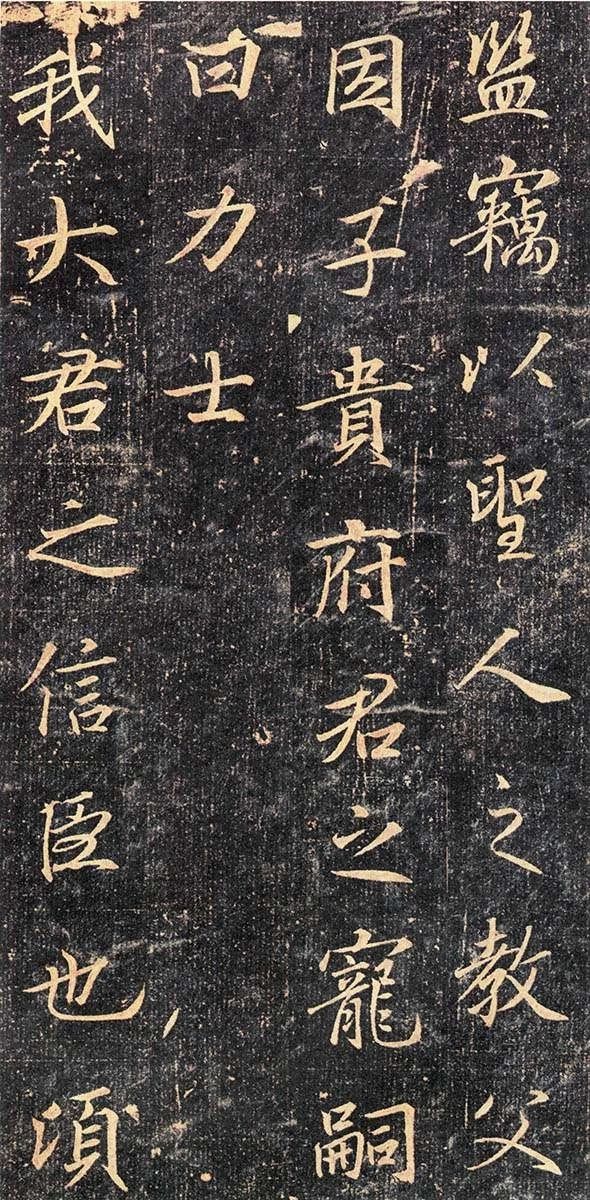 監竊以聖人之教父
因子貴府君之寵嗣
曰力士
我大君之信臣也須